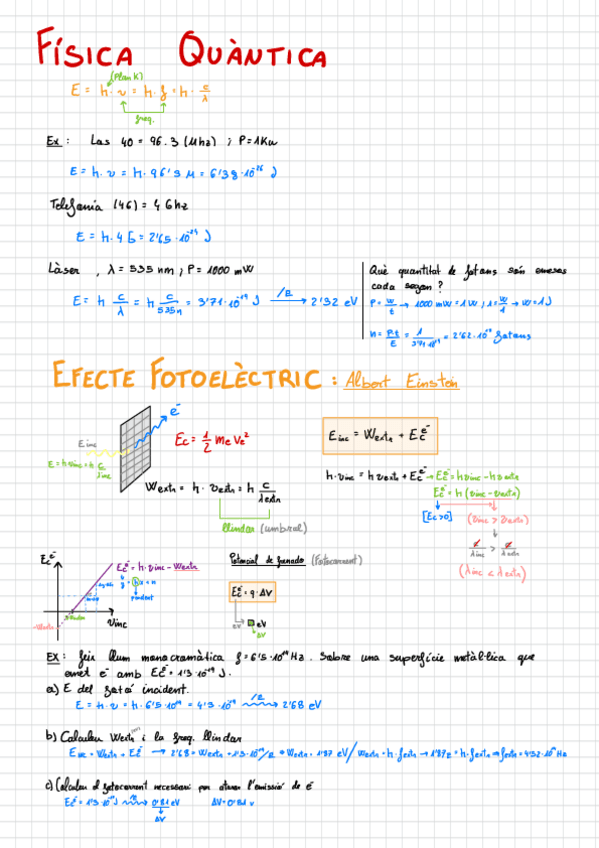 FÍSICA QUÀNTICA
(Plank)
E = h·ν = h·f = h· c/λ
freq.
Ex: Las 40 = 96.3 (Mhz) ; P=1Kw
E = h·ν = h·96'3 M = 6'38·10⁻²⁶ J
Telefonia (4G) = 4 Ghz
E = h·4 G = 2'65·10⁻²⁴ J
Làser , λ = 535 nm ; P = 1000 mW
E = h c/λ = h c/535n = 3'71·10⁻¹⁹ J → /e 2'32 eV
Què quantitat de fotons són emesos
cada segon?
P = w/t → 1000 mW = 1W ; 1 = w/1 → w = 1J
n = P·t/E = 1/3'71·10⁻¹⁹ = 2'62·10¹⁸ fotons
EFECTE FOTOELÈCTRIC: Albert Einstein
e⁻
E inc
E = h νinc = h c/λinc
Ec = 1/2 me ve²
E inc = Wextr + Ec e⁻
Wextr = h· νextr = h c/λextr
llindar (umbral)
h·νinc = h νextr + Ec e⁻ → Ec e⁻ = h νinc - h νextr
Ec e⁻ = h (νinc - νextr)
[Ec>0]
(νinc > νextr)
c/λinc > c/λextr
(λinc < λextr)
Ec e⁻
Ec e⁻ = h·νinc - Wextr
y = h x + n
pendent
νinc
-Wextr
Potencial de frenado (Fotocorrent)
Ec e⁻ = q·ΔV
eV
ΔV
EX: feix llum monocromàtica f = 6'5·10¹⁴ Hz. Sobre una superfície metàl·lica que
emet e⁻ amb Ec e⁻ = 1'3·10⁻¹⁹ J.
a) E del fotó incident.
E = h·ν = h·6'5·10¹⁴ = 4'3·10⁻¹⁹ → /e 2'68 eV
b) Calculeu Wextr i la freq. llindar
E inc = Wextr + Ec e⁻ → 2'68 = Wextr + 1'3·10⁻¹⁹/e → Wextr = 1'87 eV / Wextr = h·fextr → 1'87e = h·fextr → fextr = 4'52·10¹⁴ Hz
c) Calculeu el fotocorrent necessari per aturar l'emissió de e⁻
Ec e⁻ = 1'3·10⁻¹⁹ J → /e 0'81 eV ΔV = 0'81 v
ΔV